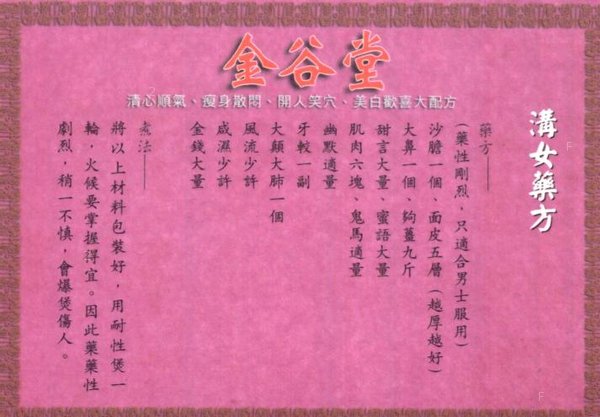 金谷堂
清心順氣、瘦身散悶、開人笑穴、美白歡喜大配方
溝女藥方
藥方——
（藥性剛烈，只適合男士服用）
沙膽一個、面皮五層（越厚越好）
大鼻一個、夠薑九斤
甜言大量、蜜語大量
肌肉六塊、鬼馬適量
幽默適量
牙較一副
大顛大肺一個
風流少許
咸濕少許
金錢大量
煮法——
將以上材料包裝好，用耐性煲一
輪，火候要掌握得宜。因此藥藥性
劇烈，稍一不慎，會爆煲傷人。
F
F